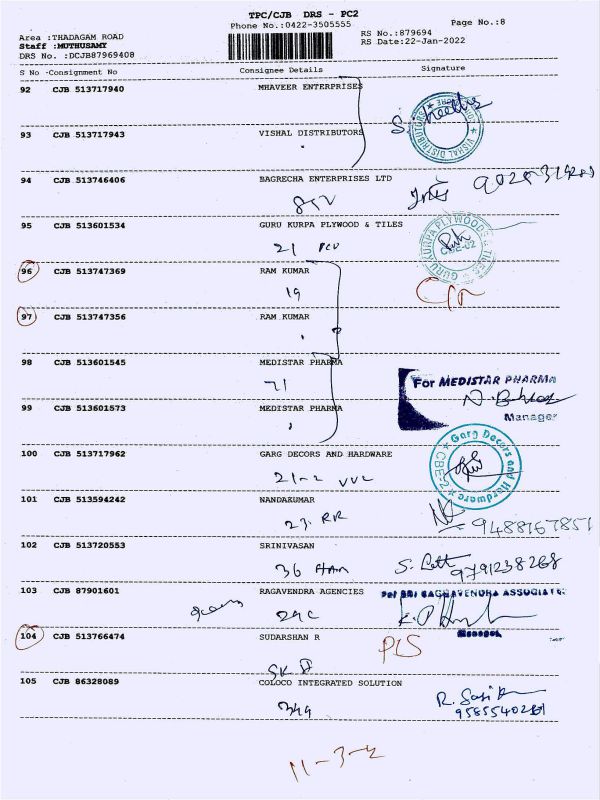 TPC/CJB DRS - PC2
Phone No.:0422-3505555
Page No.:8
Area :THADAGAM ROAD
RS No.:879694
Staff :MUTHUSAMY
RS Date:22-Jan-2022
DRS No. :DCJB87969408
S No -Consignment No Consignee Details Signature
92 CJB 513717940 MHAVEER ENTERPRISES
93 CJB 513717943 VISHAL DISTRIBUTORS
VISHAL DISTRIBUTORS
94 CJB 513746406 BAGRECHA ENTERPRISES LTD
95 CJB 513601534 GURU KURPA PLYWOOD & TILES
21
GURU KURPA PLYWOODS & TILES
CBE-02
96 CJB 513747369 RAM KUMAR
19
97 CJB 513747356 RAM KUMAR
98 CJB 513601545 MEDISTAR PHARMA
71
For MEDISTAR PHARMA
99 CJB 513601573 MEDISTAR PHARMA
Manager
100 CJB 513717962 GARG DECORS AND HARDWARE
21-2 VVL
Garg Decors and Hardware
CBE-2
101 CJB 513594242 NANDAKUMAR
23 RR
9488167851
102 CJB 513720553 SRINIVASAN
36
9791238268
103 CJB 87901601 RAGAVENDRA AGENCIES
For SRI RAGHAVENDRA ASSOCIATES
Manager
104 CJB 513766474 SUDARSHAN R
PLS
105 CJB 86328089 COLOCO INTEGRATED SOLUTION
349
11-3-2